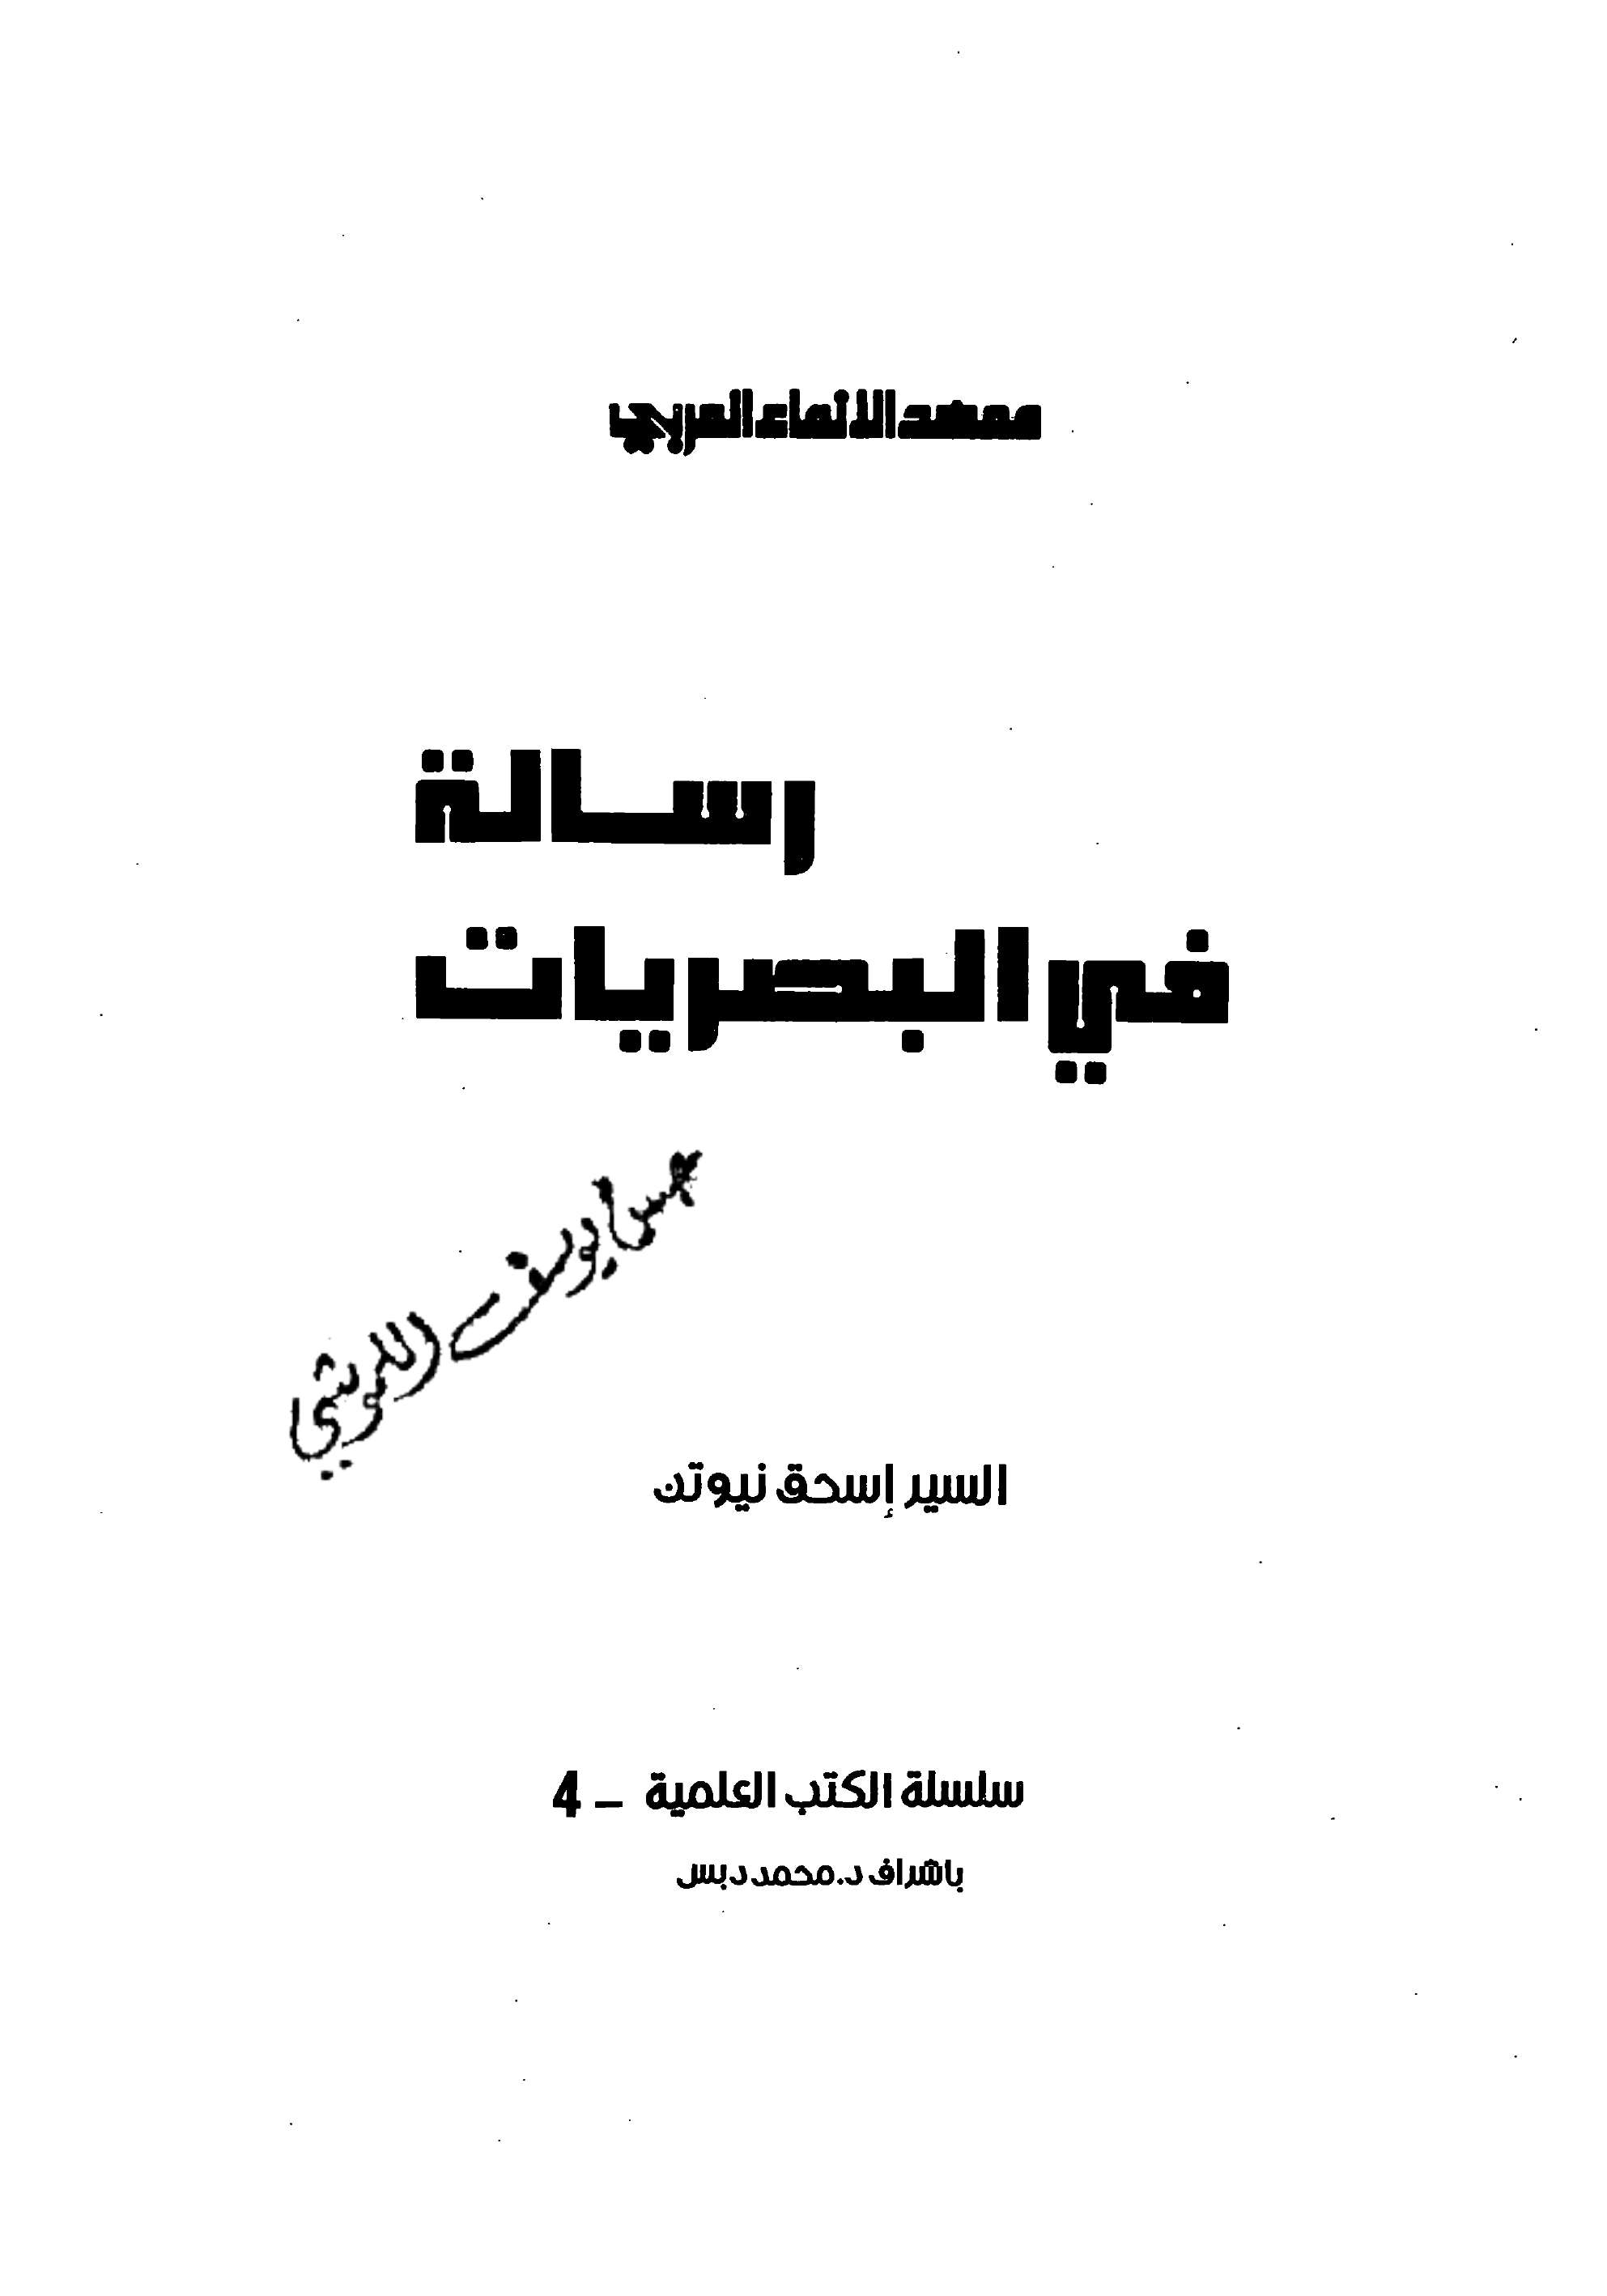 معهد الانماء العربي
رسالة
في البصريات
يوسف
السير إسحق نيوتن
سلسلة الكتب العلمية - 4
باشراف د.محمد دبس